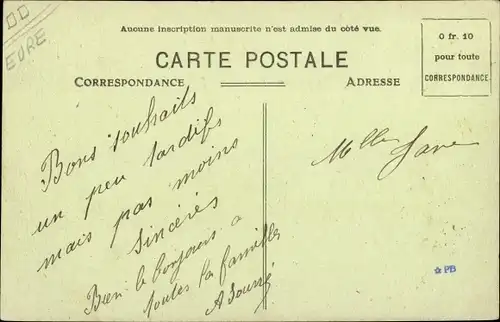 EURE
Aucune inscription manuscrite n'est admise du côté vue.
CARTE POSTALE
CORRESPONDANCE
ADRESSE
0 fr. 10
pour toute
CORRESPONDANCE
Bons souhaits
un peu tardifs
mais pas moins
sincères
Bien le bonjour à
toutes la famille
Melle
PB